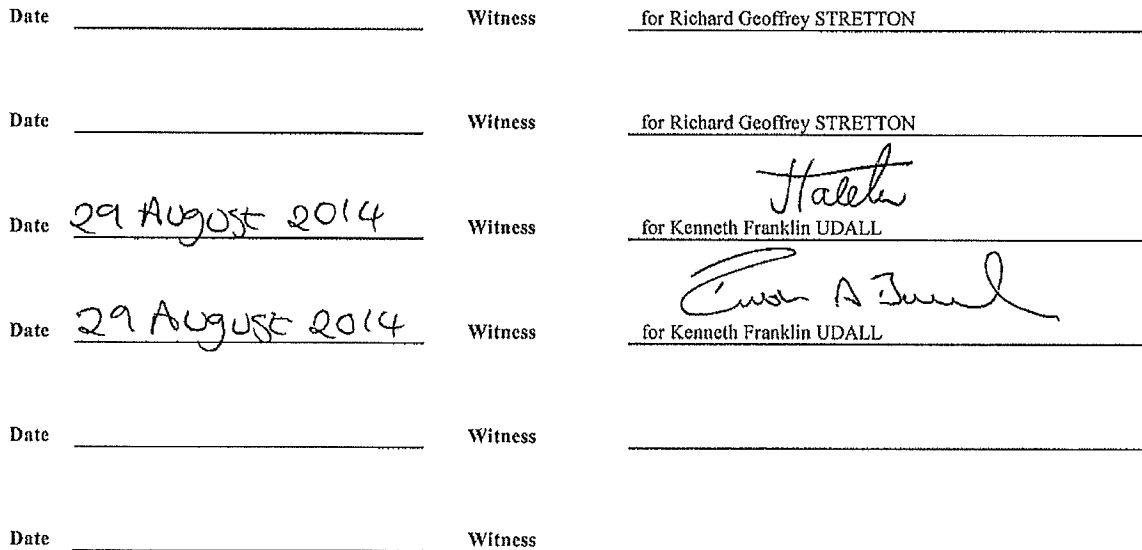 Date Witness for Richard Geoffrey STRETTON
Date Witness for Richard Geoffrey STRETTON
Date 29 August 2014 Witness
for Kenneth Franklin UDALL
Date 29 August 2014 Witness
for Kenneth Franklin UDALL
Date Witness
Date Witness